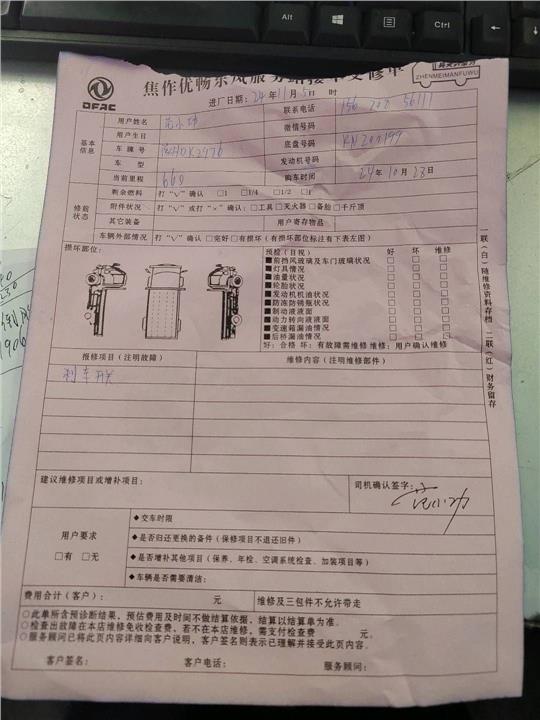 Alt
Ctrl
DFAC
焦作优畅东风服务站接车交修单
ZHENMEIMANFUWU
进厂日期：24年11月5日 时
基本信息
用户姓名 范小功 联系电话
用户生日 微信号码
车牌号 底盘号码 RN200199
车型 发动机号码
当前里程 660 购车时间 24年10月23日
修前状态
剩余燃料 打“√”确认 □1 □1/4 □1/2 □F
附件状况 打“√”或打“×”确认：□工具 □灭火器 □备胎 □千斤顶
其它装备 用户寄存物品
车辆外部情况 打“√”确认 □完好 □有损坏（有损坏部位标注有下表左图）
损坏部位：
预检（目视） 好 坏 维修
■前挡风玻璃及车门玻璃状况 □ □ □
■灯具情况 □ □ □
■油量状况 □ □ □
■轮胎状况 □ □ □
■发动机机油状况 □ □ □
■防冻防锈瓶状况 □ □ □
■制动液液面 □ □ □
■动力转向液液面 □ □ □
■变速箱漏油情况 □ □ □
■后桥漏油情况 □ □ □
好：合格 坏：有故障需维修 维修：用户确认维修
报修项目（注明故障） 维修内容（注明维修部件）
刹车开关
建议维修项目或增补项目： 司机确认签字：
范小功
用户要求
□有 □无
◆交车时限
◆是否归还更换的备件（保修项目不退还旧件）
◆是否增补其他项目（保养、年检、空调系统检查、加装项目等）
◆车辆是否需要清洁：
费用合计（客户）： 元 维修及三包件不允许带走
○此单所含预诊断结果，预估费用及时间不做结算依据，结算以结算单为准。
○检查出故障在本店维修免收检查费，若不在本店维修，需支付检查费 元。
○服务顾问已将此页内容详细向客户说明，客户签名则表示已理解并接受此页内容。
客户签名： 客户电话： 服务顾问：
一联（白）随维修资料存档 二联（红）财务留存